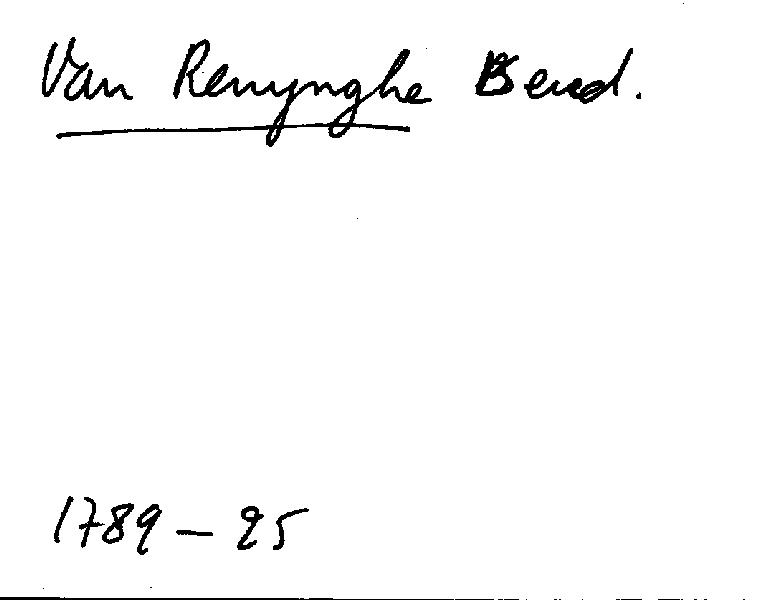 Van Renynghe Bend.
1789 – 95